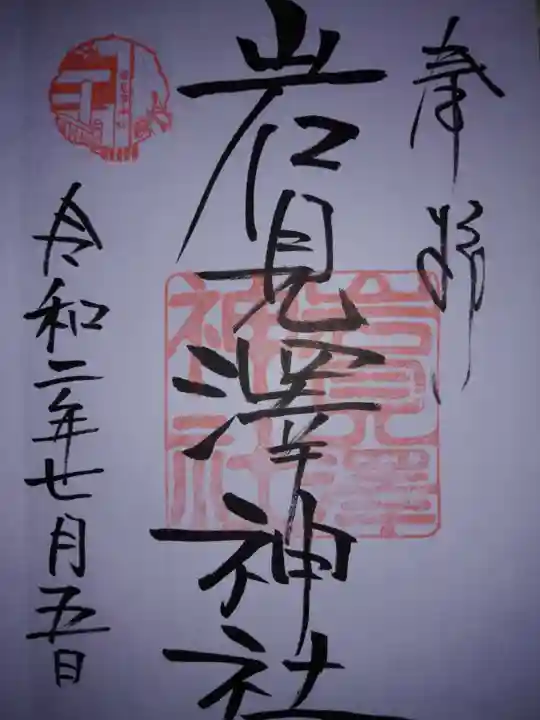 奉拝
岩見澤神社
岩見澤神社
令和二年七月五日